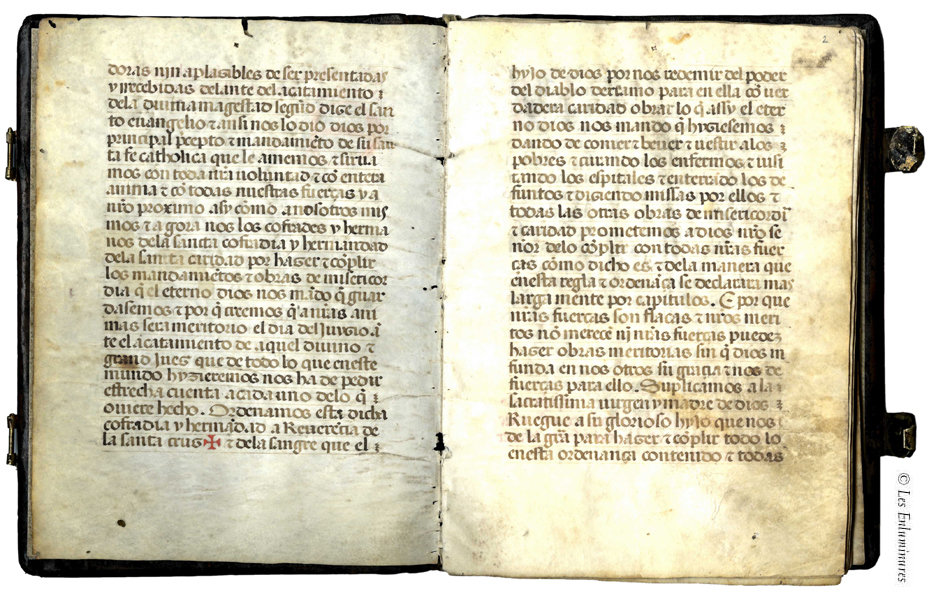 doras nin aplasibles de ser presentadas
y rrecebidas delante del acatamiento ⁊
dela diuina magestad segūd dize el san
to euangelio ⁊ ansi nos lo dio dios por
principal pcepto ⁊ mandamiēto de su san
ta fe catholica que le amemos ⁊ sirua
mos con toda nr̄a uoluntad ⁊ cō entera
anima ⁊ cō todas nuestras fuerças y a
nr̄o proximo asy como a nosotros mis
mos ⁊ agora nos los cofrades y herma
nos dela santa cofradia y hermandad
dela santa caridad por hazer ⁊ cōplir
los mandamiētos ⁊ obras de misericor
dia q̄ el eterno dios nos mādo q̄ guar
dasemos ⁊ por q̄ creemos q̄ a nr̄as ani
mas sera meritorio el dia del juyzio ā
te el acatamiento de aquel diuino ⁊
grand juez que de todo lo que eneste
mundo hyzieremos nos ha de pedir
estrecha cuenta a cada uno delo q̄ ⁊
ouiere hecho. Ordenamos esta dicha
cofradia y hermādad a Reuerēcia de
la santa cruz ✠ ⁊ dela sangre que el ⁊
2
hyjo de dios por nos redemir del poder
del diablo derramo para en ella cō uer
dadera caridad obrar lo q̄ assy el eter
no dios nos mando q̄ hyziesemos ⁊
dando de comer ⁊ beuer ⁊ uestir alos ⁊
pobres ⁊ curando los enfermos ⁊ uisi
tando los espitales ⁊ enterrādo los de
funtos ⁊ diziendo missas por ellos ⁊
todas las otras obras de misericordia
⁊ caridad prometemos a dios nr̄o se
ñor delo cōplir con todas nr̄as fuer
ças cōmo dicho es ⁊ dela manera que
enesta regla ⁊ ordenāça se declarara mas
larga mente por capitulos. E por que
nr̄as fuerças son flacas ⁊ nr̄os meri
tos nō merecē ni nr̄as fuerças pueden
hazer obras meritorias sin q̄ dios in
funda en nos otros su gracia ⁊ nos de
fuerças para ello. Suplicamos a la ⁊
sacratissima uirgen y madre de dios ⁊
Ruegue a su glorioso hyjo que nos ⁊
de la gr̄a para hazer ⁊ cōplir todo lo
enesta ordenança contenido ⁊ todas
© Les Enluminures